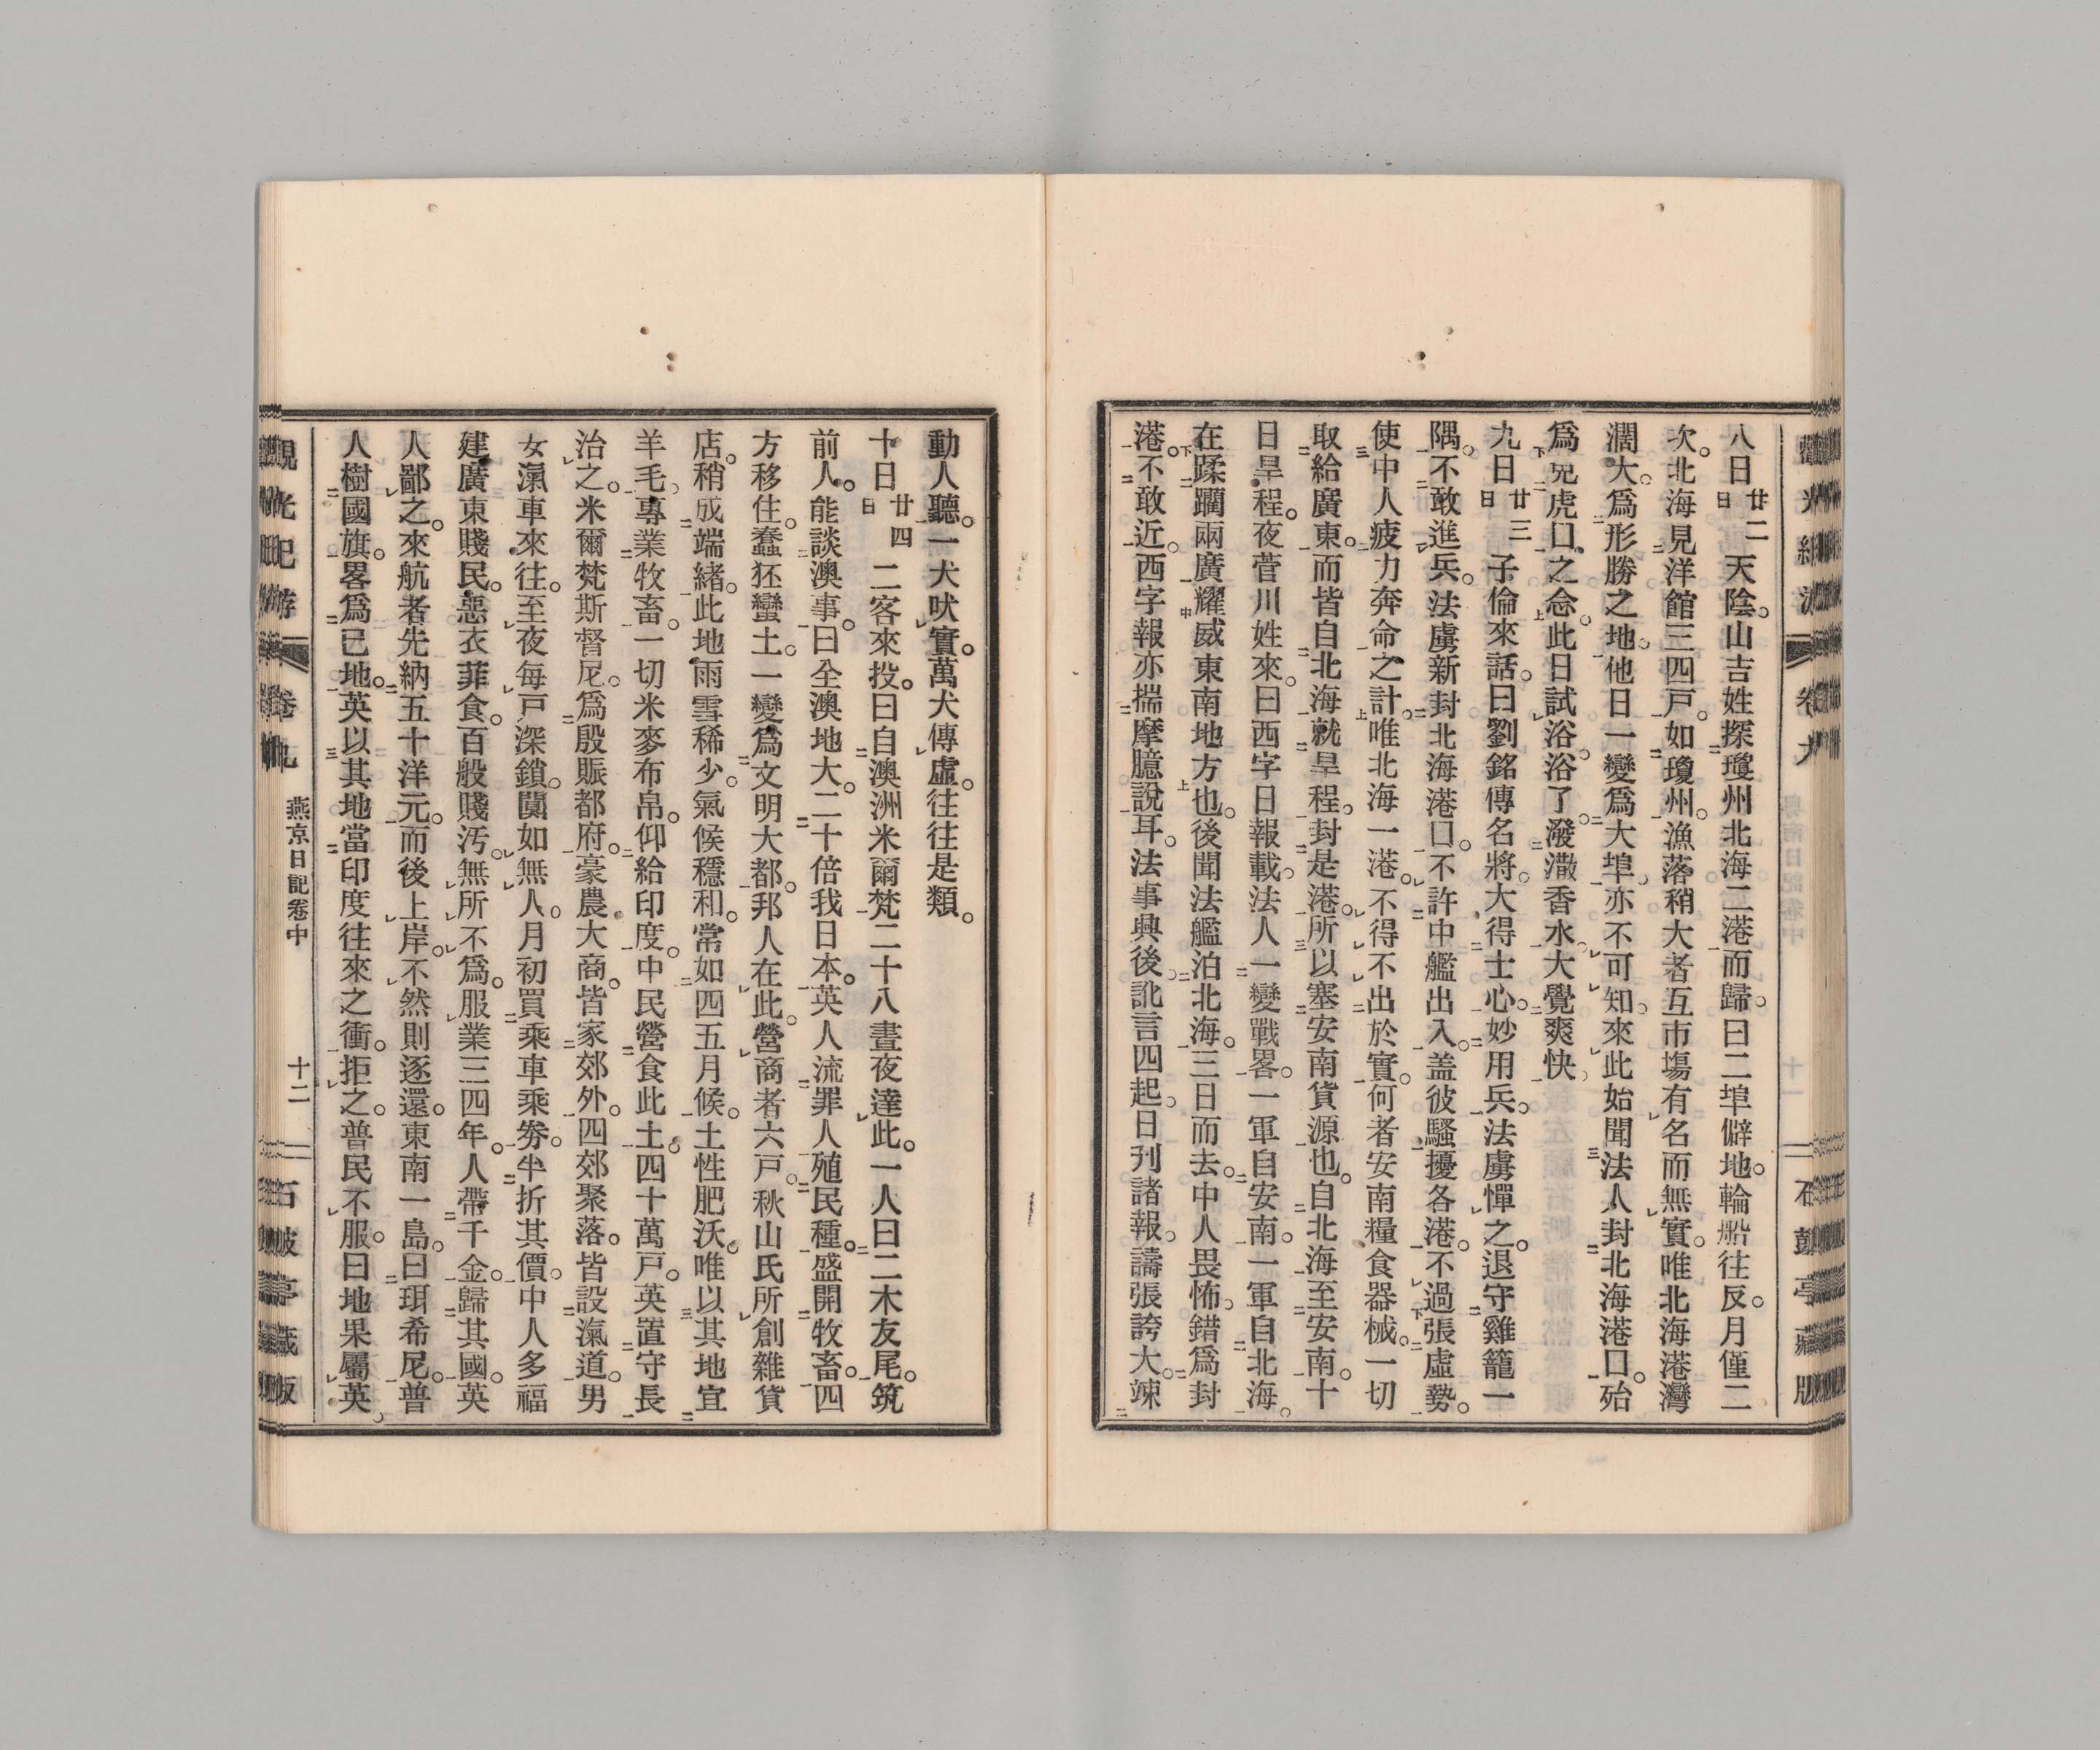 八日廿二日天陰。山吉姓探瓊州北海二港而歸。曰二埠僻地。輪船往反。月僅二
次。北海見洋館三四戸。如瓊州。漁落稍大者互市塲有名而無實。唯北海港灣
濶大。爲形勝之地。他日一變爲大埠。亦不可知。來此始聞法人封北海港口。殆
爲兕虎口之念。此日試浴。浴了。潑灂香水。大覺爽快。
九日廿三日子倫來話。曰劉銘傳名將。大得士心。妙用兵。法虜憚之。退守雞籠一
隅。不敢進兵。法虜新封北海港口。不許中艦出入。盖彼騷擾各港。不過張虛勢。
使中人疲力奔命之計。唯北海一港。不得不出於實。何者安南糧食器械。一切
取給廣東。而皆自北海就旱程。封是港。所以塞安南貨源也。自北海至安南。十
日旱程。夜菅川姓來。曰西字日報載。法人一變戰畧。一軍自安南。一軍自北海。
在蹂躪兩廣耀威東南地方也。後聞法艦泊北海。三日而去。中人畏怖。錯爲封
港。不敢近。西字報亦揣摩臆說耳。法事興後。訛言四起。日刊諸報。譸張誇大。竦
動人聽。一犬吠實。萬犬傳虛。往往是類。
十日廿四日二客來投。曰自澳洲米爾梵二十八晝夜達此。一人曰二木友尾。筑
前人。能談澳事。曰全澳地大。二十倍我日本。英人流罪人殖民種。盛開牧畜。四
方移住。蠢狉蠻土。一變爲文明大都。邦人在此。營商者六戸。秋山氏所創雜貨
店。稍成端緒。此地雨雪稀少。氣候穩和。常如四五月候。土性肥沃。唯以其地宜
羊毛。專業牧畜。一切米麥布帛。仰給印度。中民營食此土。四十萬戸。英置守長
治之。米爾梵斯督尼。爲殷賑都府。豪農大商。皆家郊外。四郊聚落。皆設滊道。男
女滊車來往。至夜每戸深鎖。闃如無人。月初買乘車乘劵。半折其價。中人多福
建廣東賤民。惡衣菲食。百般賤汚。無所不爲。服業三四年。人帶千金。歸其國。英
人鄙之。來航者先納五十洋元。而後上岸。不然則逐還。東南一島。曰珥希尼。普
人樹國旗。畧爲已地。英以其地當印度往來之衝。拒之。普民不服。曰地果屬英
觀光紀游
卷九
燕京日記卷中
十二
石皷亭藏版